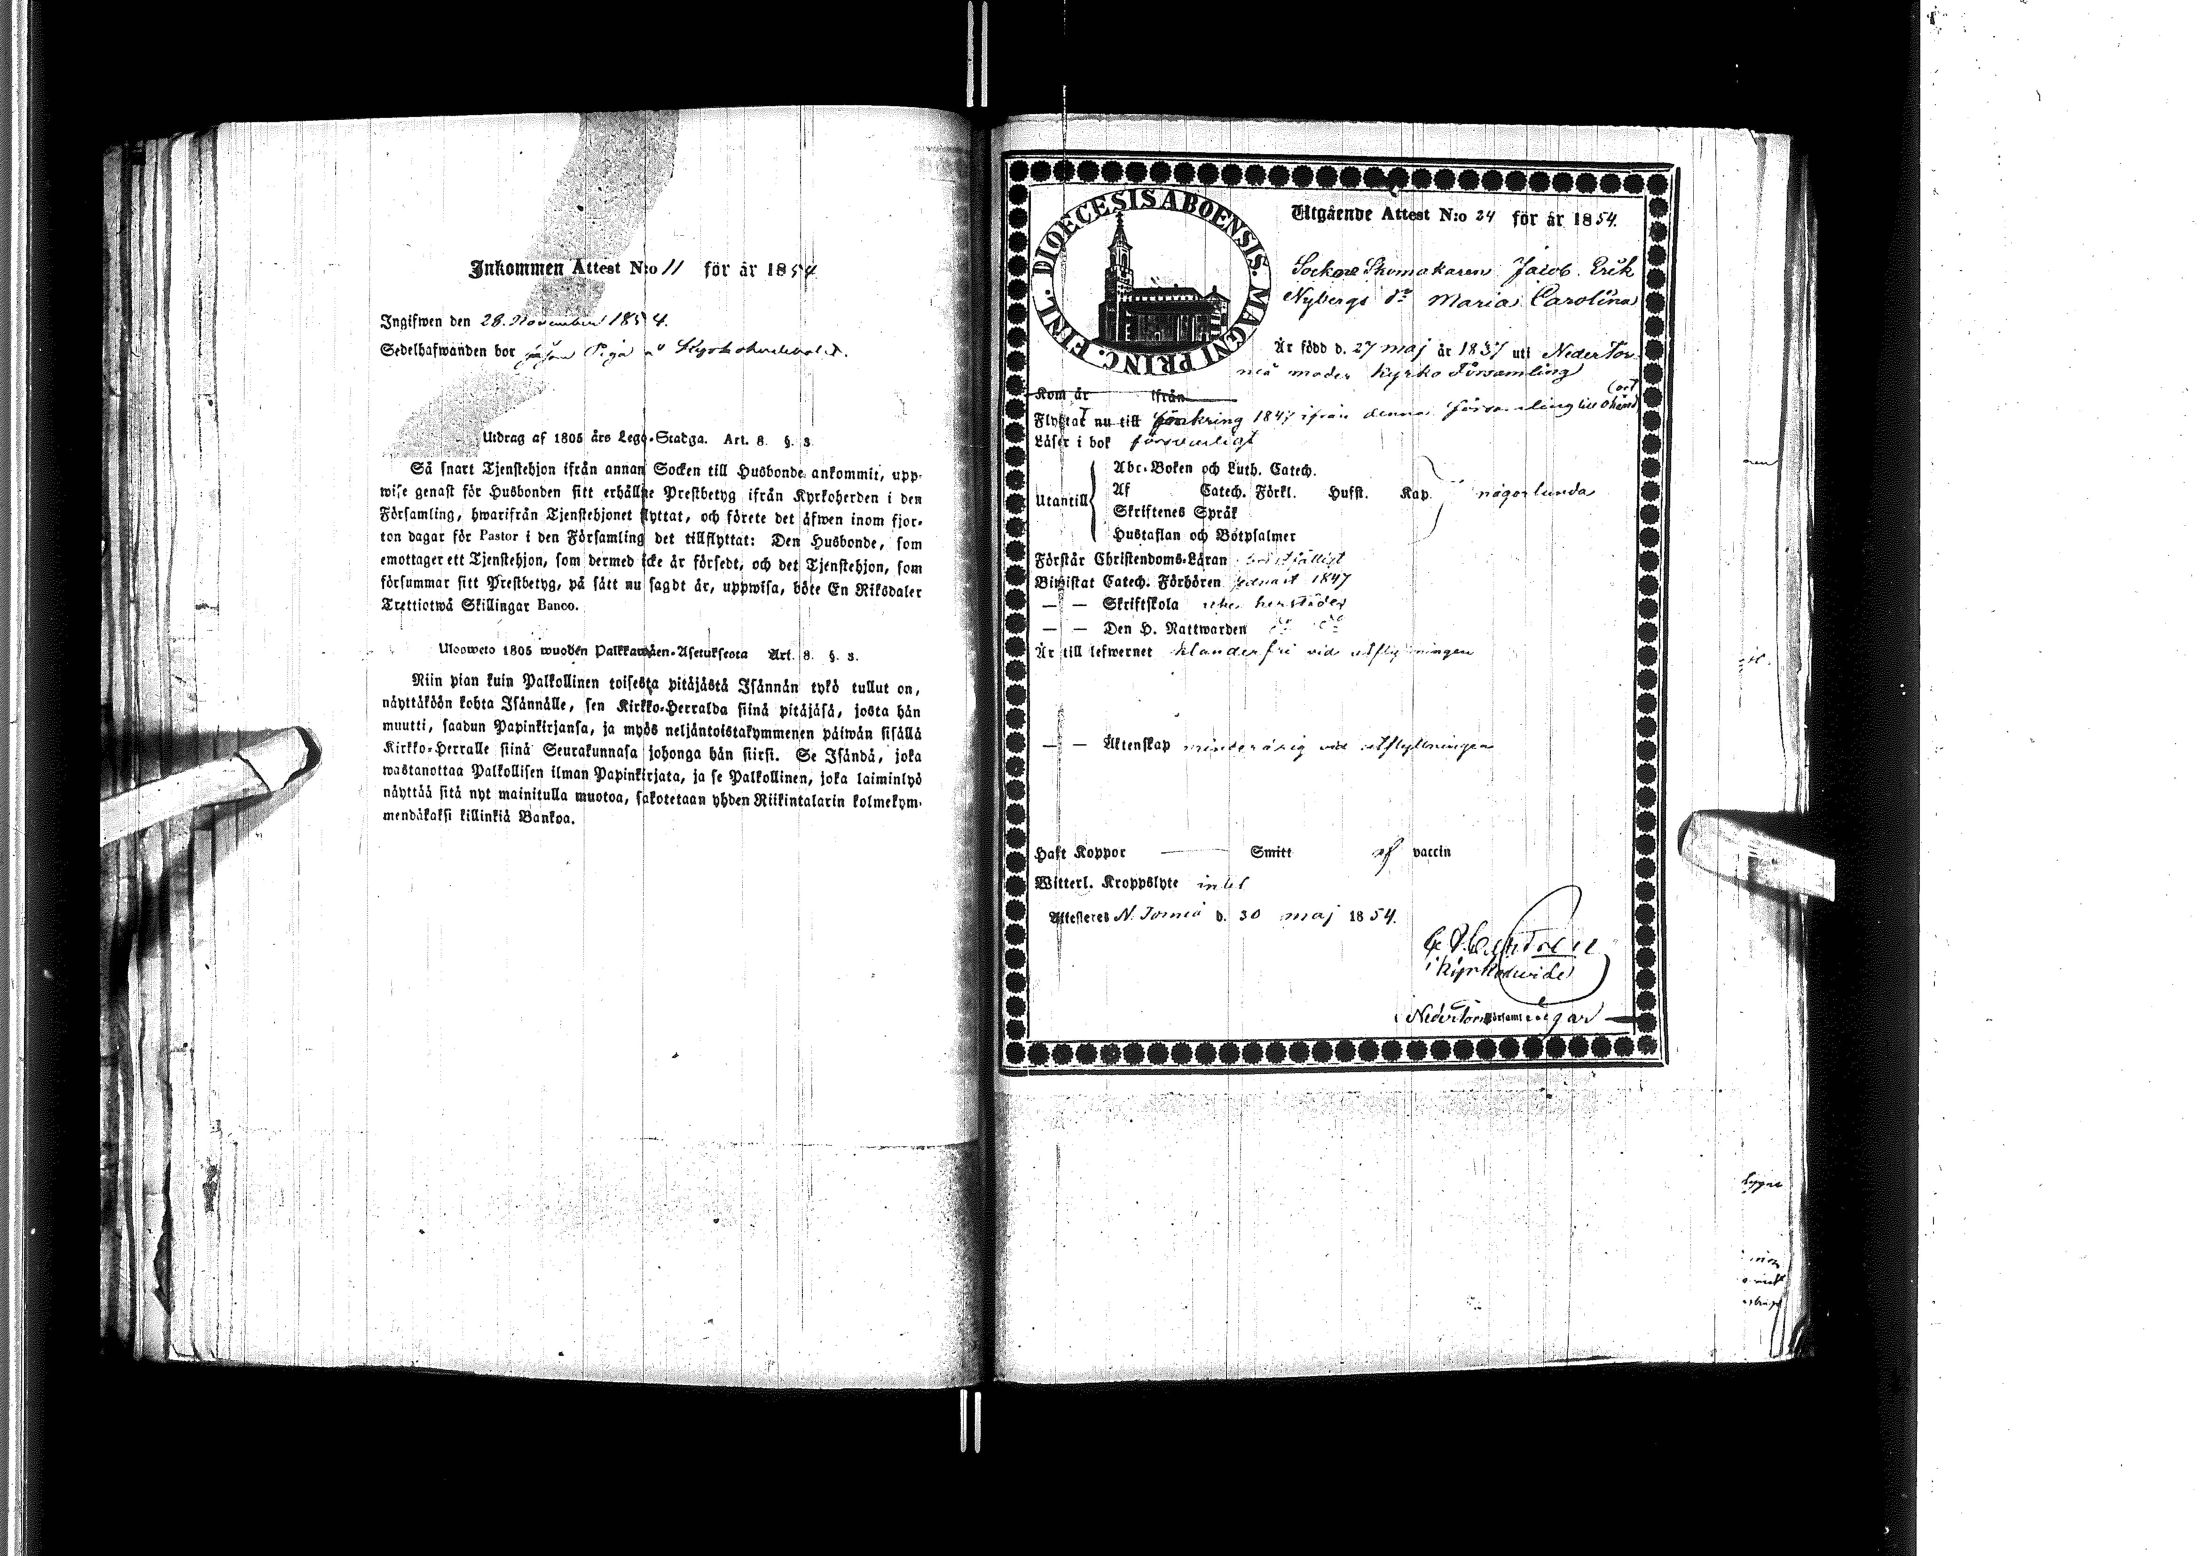 Inkommen Attest N:o 11 för år 1854
Ingifwen den 28. November 1854.
Sedelhafwanden bor såsom Piga å Kyrkoherdebolet.
Utdrag af 1805 års Lego-Stadga. Art. 8. §. 3.
Så snart Tjenstehjon ifrån annan Socken till Husbonde ankommit, upp-
wise genast för Husbonden sitt erhållne Prestbetyg ifrån Kyrkoherden i den
Församling, hwarifrån Tjenstehjonet flyttat, och förete det äfwen inom fjor-
ton dagar för Pastor i den Församling det tillflyttat: Den Husbonde, som
emottager ett Tjenstehjon, som dermed icke är försedt, och det Tjenstehjon, som
försummar sitt Prestbetyg, på sätt nu sagdt är, uppwisa, böte En Riksdaler
Trettiotwå Skillingar Banco.
Ulosweto 1805 wuoden Palkkawäen-Asetuksesta Art. 8. §. 3.
Niin pian kuin Palkollinen toisesta pitäjästä Isännän tykö tullut on,
näyttäköön kohta Isännälle, sen Kirkko-Herralda siinä pitäjäsä, josta hän
muutti, saadun Papinkirjansa, ja myös neljäntoistakymmenen päiwän sisällä
Kirkko-Herralle siinä Seurakunnasa johonga hän siirsi. Se Isändä, joka
wastanottaa Palkollisen ilman Papinkirjata, ja se Palkollinen, joka laiminlyö
näyttää sitä nyt mainitulla muotoa, sakotetaan yhden Riikintalarin kolmekym-
mendäkaksi killinkiä Bankoa.
DIOECESIS ABOENSIS. MAGNI PRINC. FINL.
Utgående Attest N:o 24 för år 1854.
Sockne Skomakaren Jacob Erik
Nybergs dr Maria Carolina
Är född d. 27 maj år 1837 uti Neder Tor
neå moder kyrko Församling
Kom år ifrån
Flyttat nu till omkring 1847 ifrån denna församling till okänd
(ort
Läser i bok försvarligt
Utantill
Abc-Boken och Luth. Catech.
Af Catech. Förkl. Hufst. Kap. någorlunda
Skriftenes Språk
Hustaflan och Botpsalmer
Förstår Christendoms-Läran
Biwistat Catech. Förhören 1847
— — Skriftskola
— — Den H. Nattwarden do do
Är till lefwernet klanderfri vid utflyttningen
— — Äktenskap minderårig vid utflyttningen
Haft Koppor Smitt af vaccin
Witterl. Kroppslyte intet
Attesteras N. Torneå d. 30 maj 1854.
Castrén
i Neder Torneå Församlingar